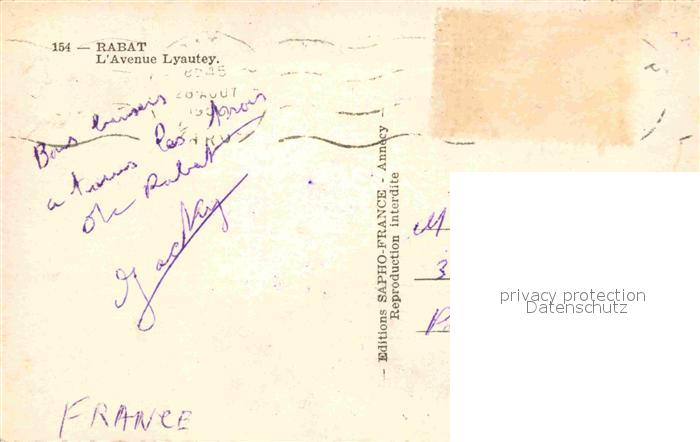 154 — RABAT
L'Avenue Lyautey.
Bons baisers
a tous les trois
de Rabat
Jacky
FRANCE
— Editions SAPHO-FRANCE - Annecy -
Reproduction interdite
M
3
privacy protection
Datenschutz